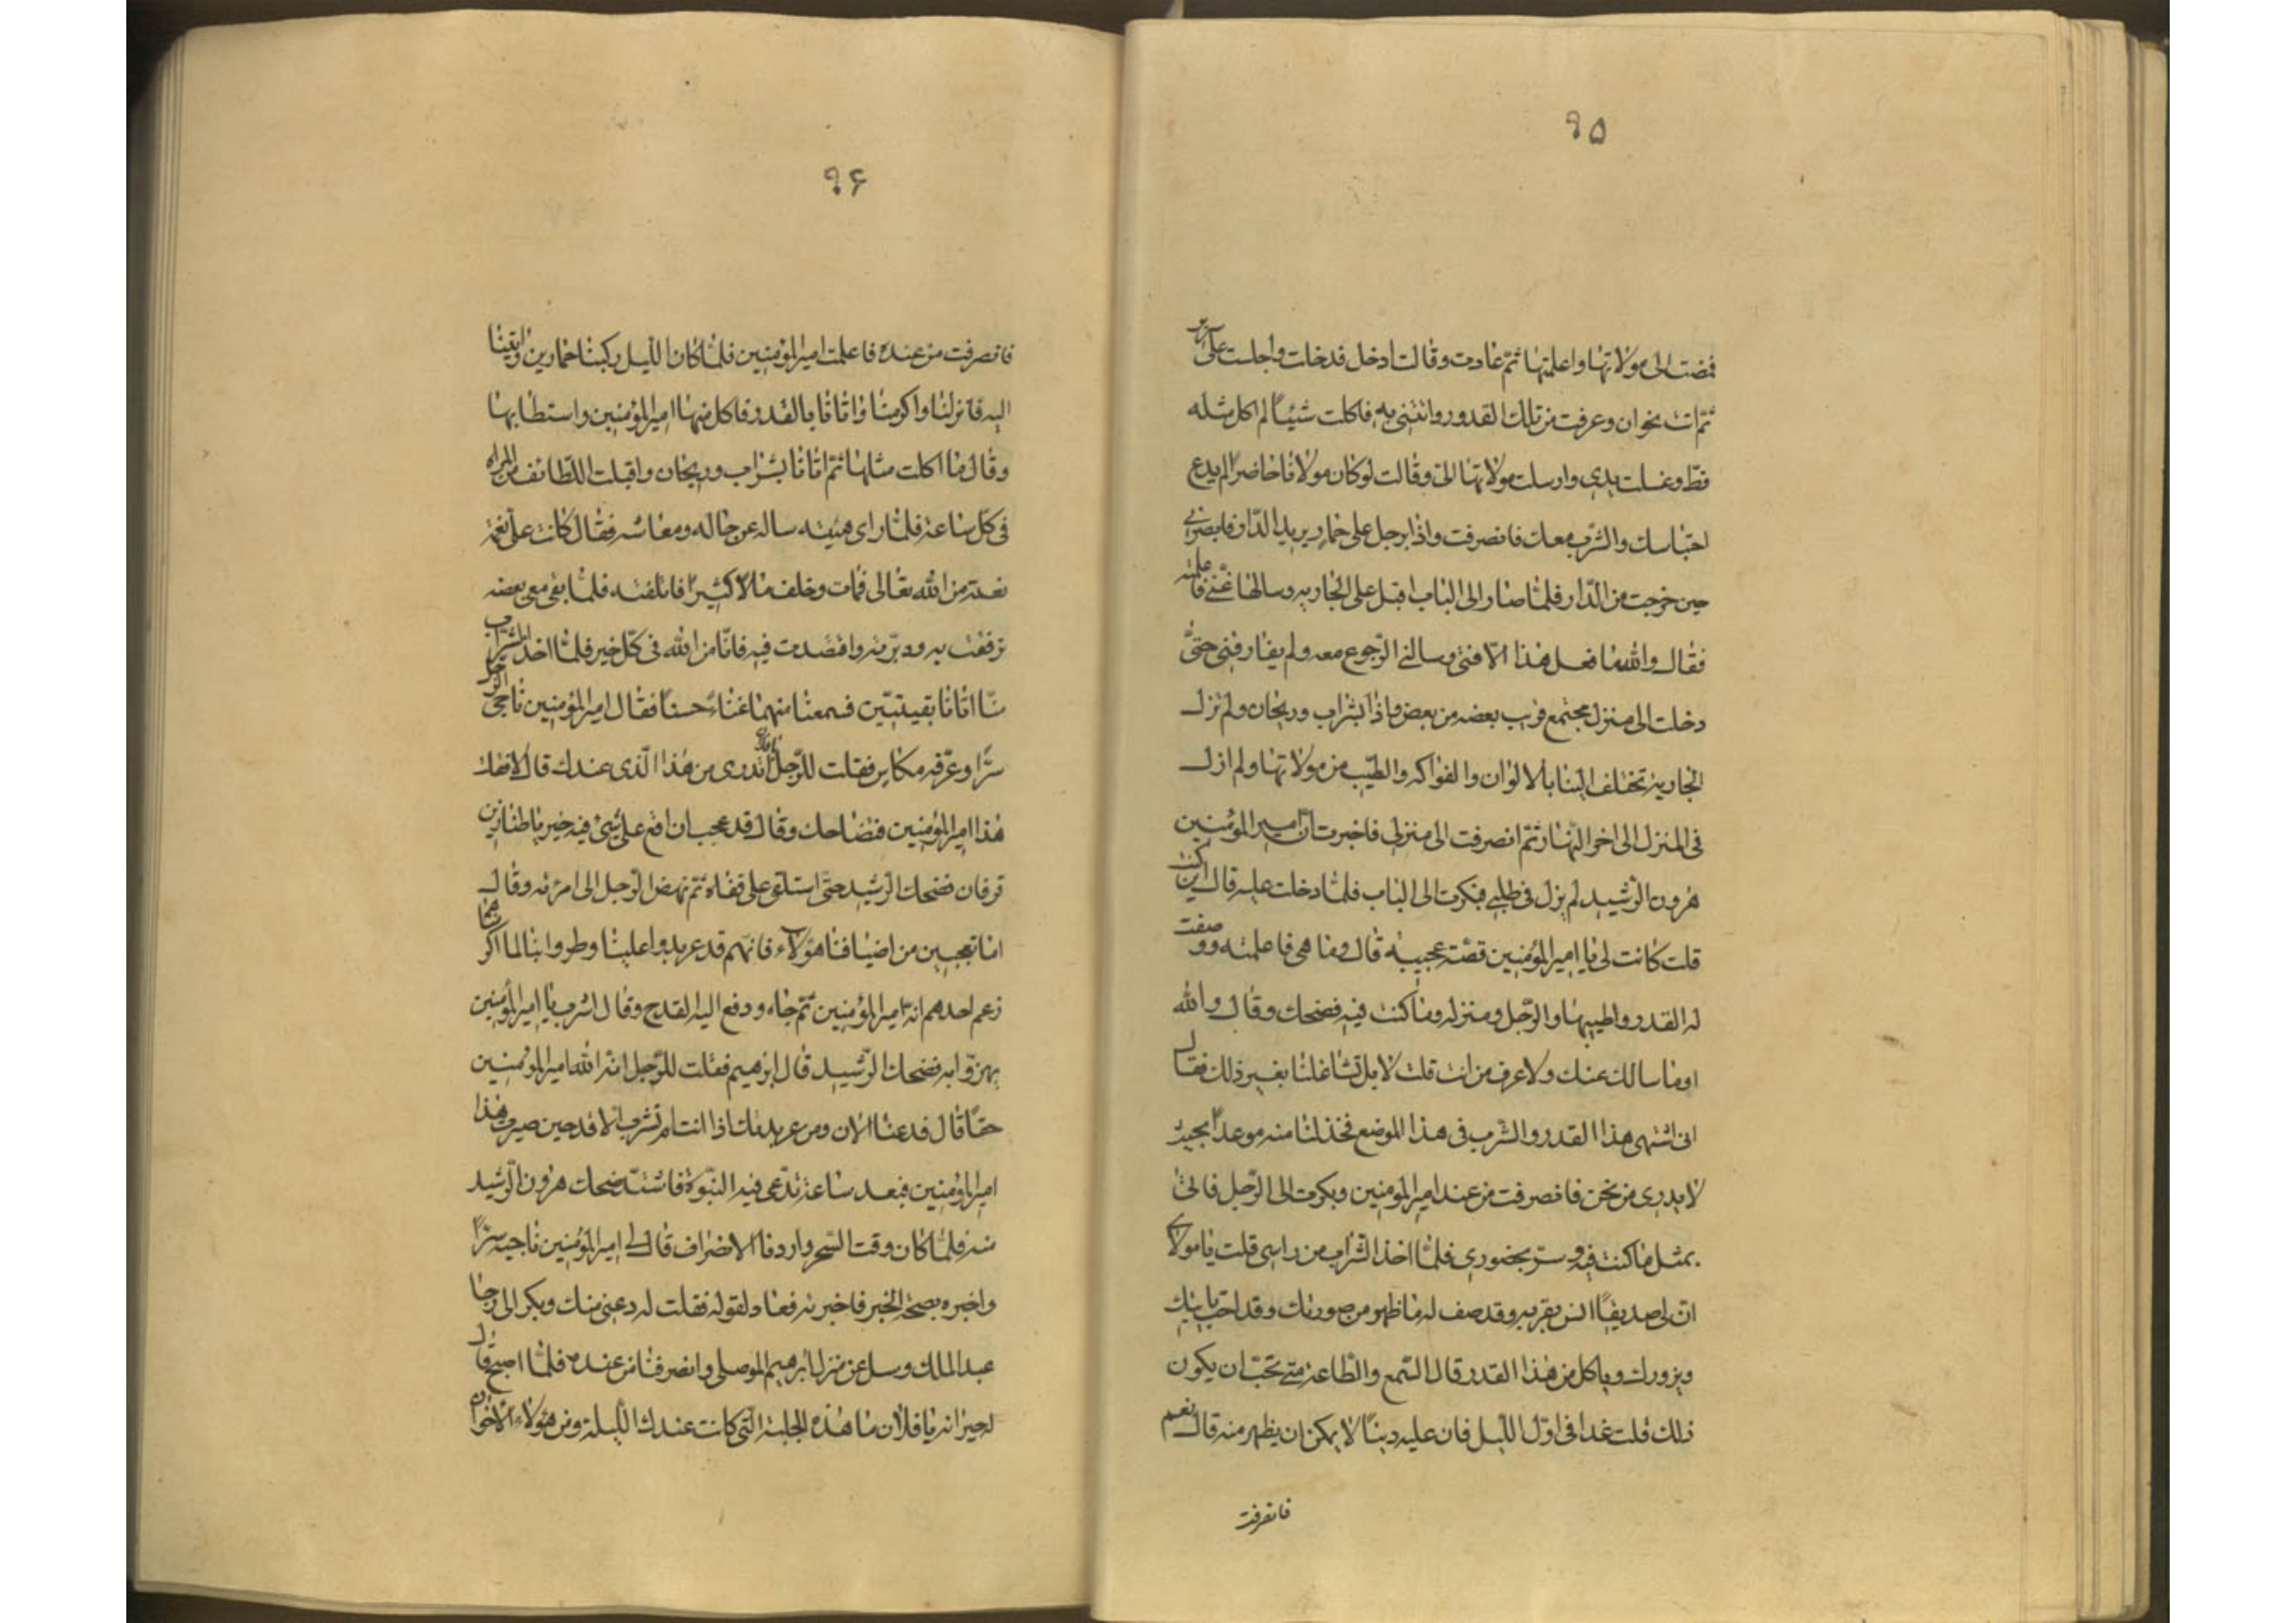 ٩٥
فمضت الى مولاتها واعلمتها ثم عادت وقالت ادخل فدخلت واجلست على سرير
ثم اتت بخوان وغرفت من تلك القدور واتتنى به فاكلت شيئاً لم اكل مثله
قط وغسلت يدى وارسلت مولاتها الىّ وقالت لو كان مولانا حاضراً لم يدع
احتباسك والشرب معك فانصرفت واذا برجل على حمار يريد الدار فابصرنى
حين خرجت من الدار فلما صار الى الباب اقبل على الجارية وسالها عنى فاعلمته
فقال والله ما فعل هذا الا فتى وسالنى الرجوع معه ولم يفارقنى حتى
دخلت الى منزل مجتمع قريب بعضه من بعض واذا بشراب وريحان ولم تزل
الجارية تختلف الينا بالالوان والفواكه والطيب من مولاتها ولم ازل
فى المنزل الى اخر النهار ثم انصرفت الى منزلى فاخبرت ان امير المؤمنين
هرون الرشيد لم يزل فى طلبى فبكرت الى الباب فلما دخلت عليه قال اين كنت
قلت كانت لى يا امير المؤمنين قصة عجيبة قال وما هى فاعلمته ووصفت
له القدور وطيبها والرجل ومنزله وما كنت فيه فضحك وقال والله
اوما سالك عنك ولا عرف من انت قلت لا بل تشاغلنا بغير ذلك فقال
انى اشتهى هذا القدور والشرب فى هذا الموضع فخذ لنا منه موعداً بحيث
لا يدرى من نحن فانصرفت من عند امير المؤمنين وبكرت الى الرجل فاتى
بمثل ما كنت فيه وسرّ بحضورى فلما اخذ الشراب من راسى قلت يا مولاى
ان لى صديقاً انس بقربه وقد صف له ما ظهر من صورتك وقد احب ياتيك
ويزورك وياكل من هذا القدور قال السمع والطاعة متى تحب ان يكون
ذلك قلت غدا فى اول الليل فان عليه ديناً لا يمكن ان يظهر منه قال نعم
فانصرفت
٩۶
فانصرفت من عنده فاعلمت امير المؤمنين فلما كان الليل ركبنا حمارين واتينا
اليه فانزلنا واكرمنا واتانا بالقدور فاكل منها امير المؤمنين واستطابها
وقال ما اكلت مثلها ثم اتانا بشراب وريحان واقبلت اللطائف من المراة
فى كل ساعة فلما راى هيئته ساله عن حاله ومعاشه فقال كانت على نعمة
نعمة من الله تعالى فمات وخلف مالا كثيرا فاتلفته فلما بقى معى بعضه
ترفقت به ودبرته واقتصدت فيه فانا من الله فى كل خير فلما اخذ الشراب
منا اتانا بقينتين فسمعنا منهما غناءً حسناً فقال امير المؤمنين ناجى الرجل
سرّا وعرّفه مكانى فقلت للرجل يا فلان اتدرى من هذا الذى عندك قال لا قلت
هذا امير المؤمنين فتضاحك وقال قد عجب ان اقع على شىء فيه خير يا طنازين
قرفان فضحك الرشيد حتى استلقى على قفاه ثم نهض الرجل الى امرئته وقال
اما تعجبين من اضيافنا هؤلاء فانهم قد عربدوا علينا وطروا بنا لما اكر
زعم احدهم انه امير المؤمنين ثم جاء ودفع اليه القدح وقال اشرب يا امير المؤمنين
يهزوا به فضحك الرشيد قال ابرهيم فقلت للرجل انه والله امير المؤمنين
حقاً قال فدعنا الان ومن عربدتك اذا انت لم تشرب الا قدحين صيرت هذا
امير المؤمنين فبعد ساعة تدعى فيه النبوة فاشتد ضحك هرون الرشيد
منه فلما كان وقت السحر واردنا الانصراف قال لى امير المؤمنين ناجيه سراً
واخبره بصحة الخبر فاخبرته فعاد لقوله فقلت له دعنى منك وبكر الى رحا
عبد الملك وسل عن منزل ابرهيم الموصلى وانصرفنا من عنده فلما اصبح قال
لجيرانه يا فلان ما هذه الجلبة التى كانت عندك الليلة ومن هؤلاء الاخوان